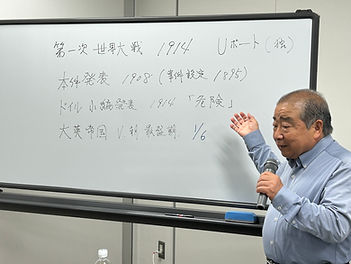 第一次世界大戦 1914 Uボート(独)
本件発表 1908 (事件設定 1895)
ドイル 小説発表 1914 「危険」
大英帝国 V 1/6